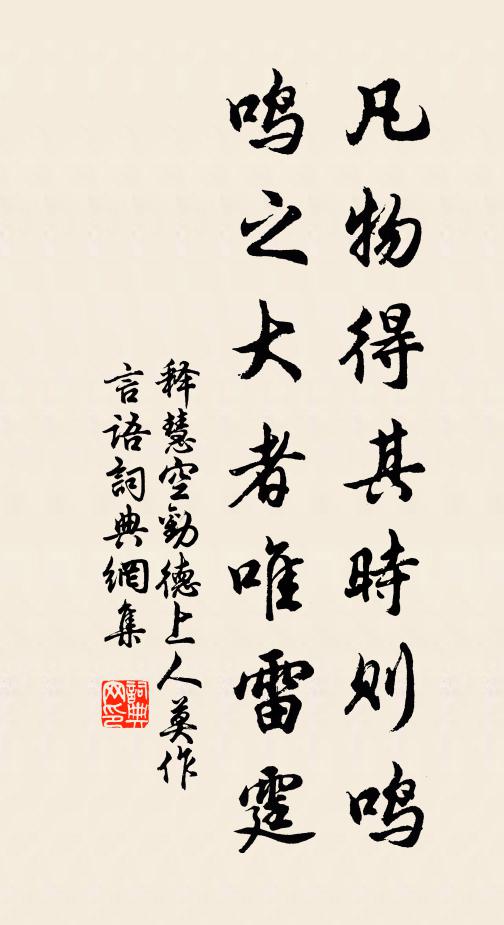 凡物得其時则鸣
鸣之大者唯雷霆
释慧空勸德上人莫作
言語詞典網集
詞典网印